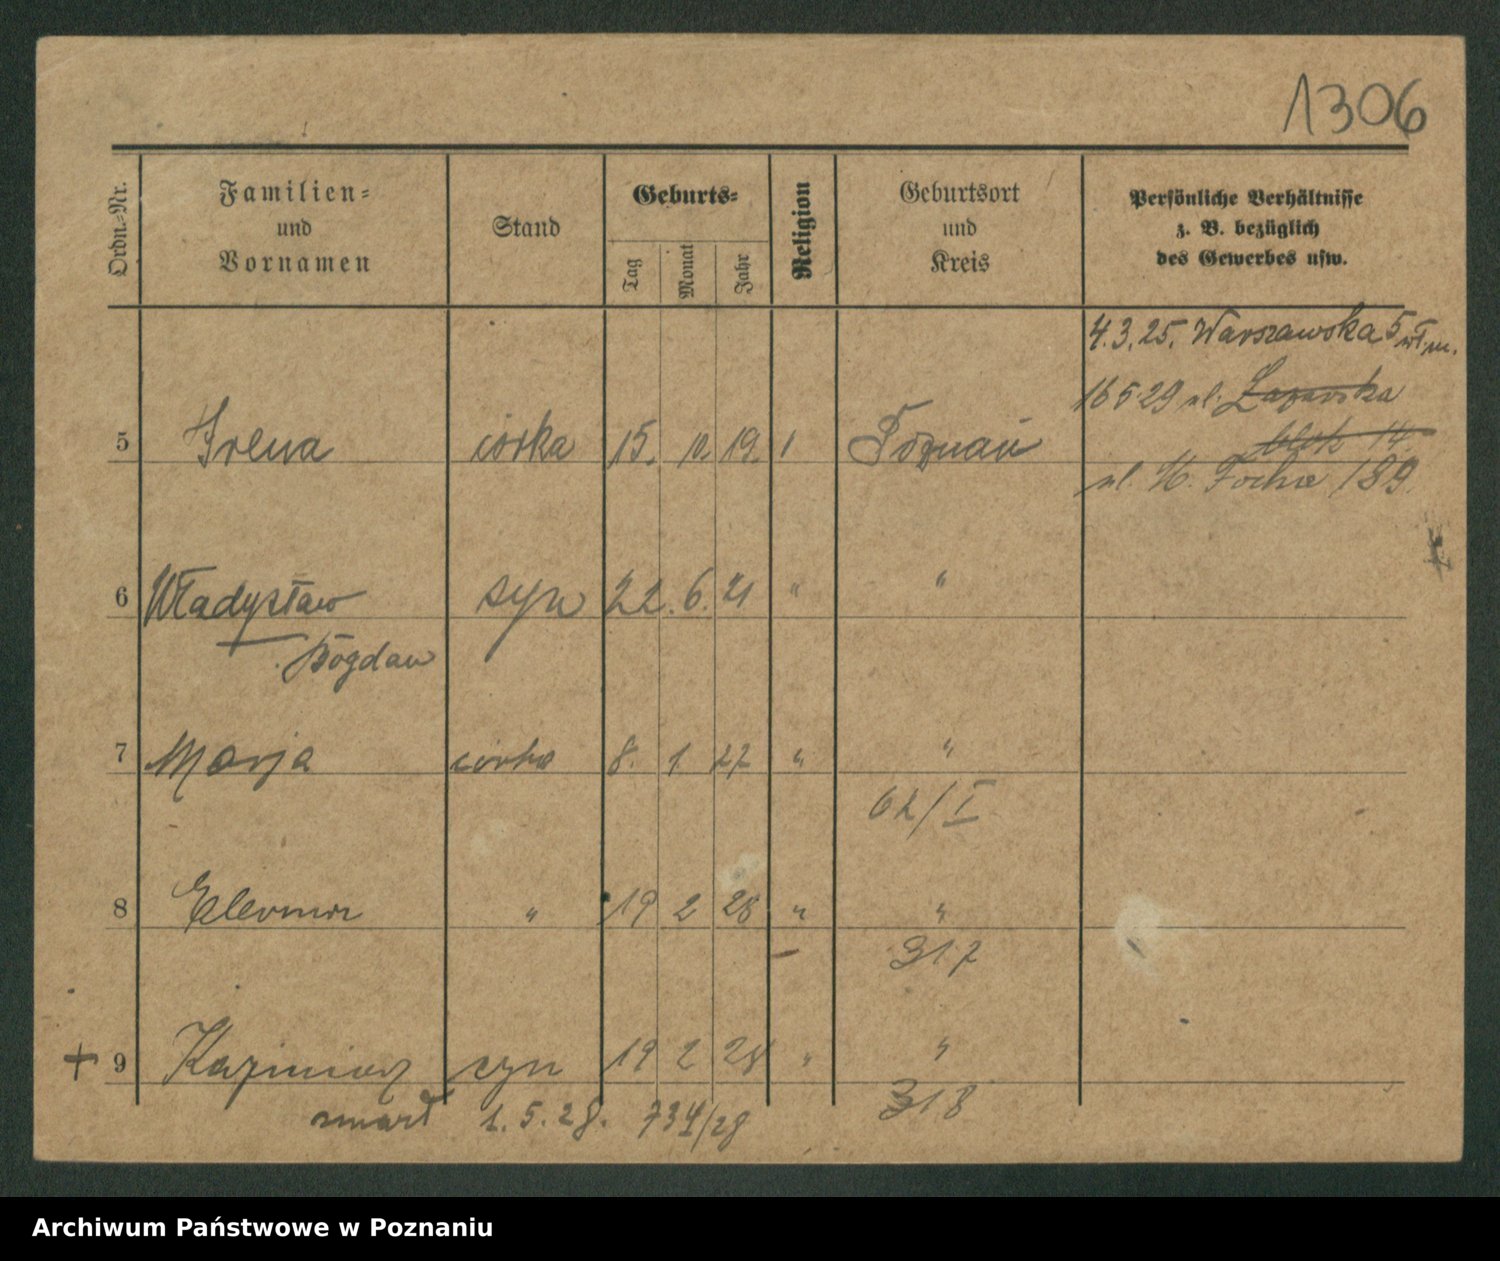 1306
Ordn.-Nr.
Familien-
und
Vornamen
Stand
Geburts-
Tag
Monat
Jahr
Religion
Geburtsort
und
Kreis
Persönliche Verhältnisse
z. B. bezüglich
des Gewerbes usw.
4.3.25. Warszawska 5
16 5 29 ul. Łazarska
blok 14.
5 Irena córka 15. 10. 19. Poznań
ul. M. Focha 189.
6 Władysław syn 22. 6. 21 " "
Bogdan
7 Marja córka 8. 1. 27 " "
62/I
8 Eleonora " 19 2 28 " "
317
+ 9 Kazimierz syn 19 2 28 " "
zmarł 1. 5. 28. 734/28 318
Archiwum Państwowe w Poznaniu